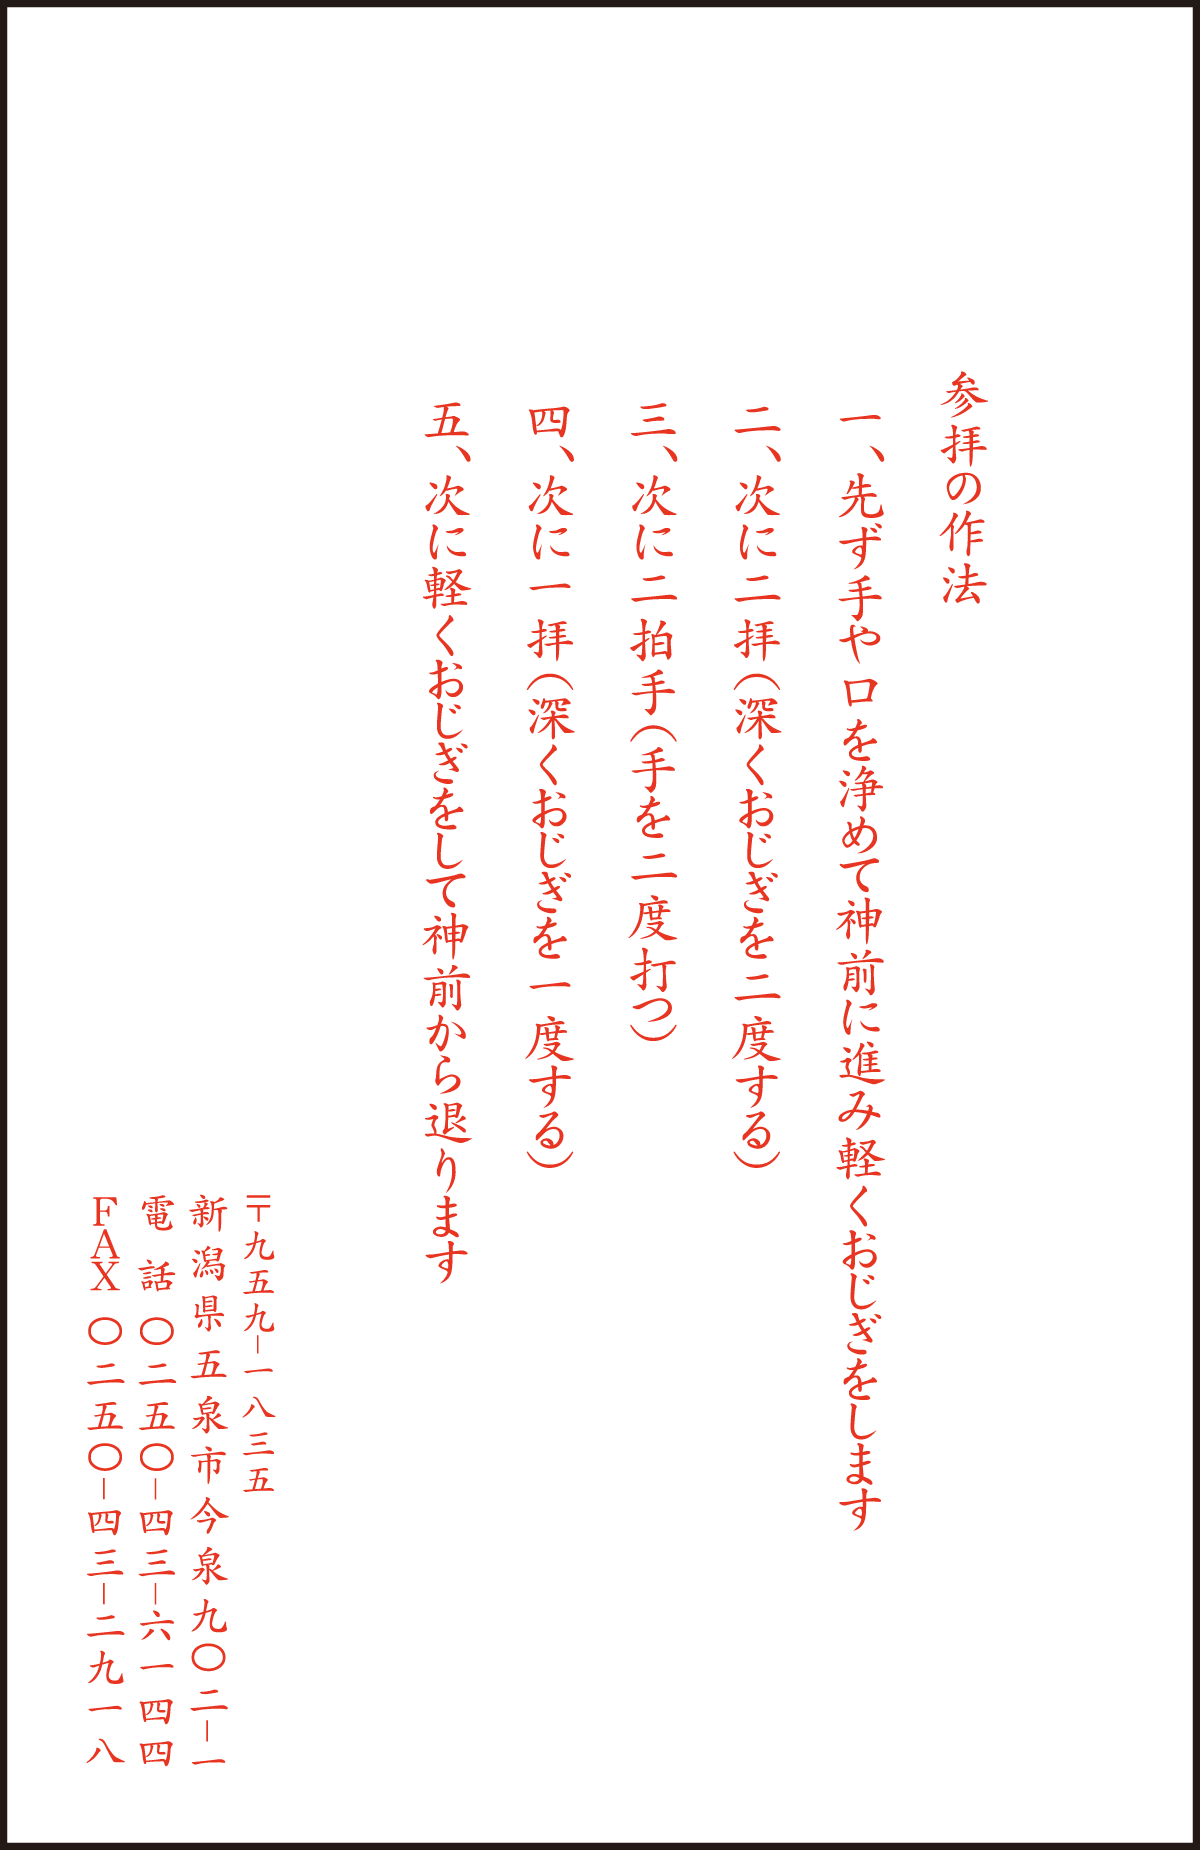 参拝の作法
一、先ず手や口を浄めて神前に進み軽くおじぎをします
二、次に二拝(深くおじぎを二度する)
三、次に二拍手(手を二度打つ)
四、次に一拝(深くおじぎを一度する)
五、次に軽くおじぎをして神前から退ります
〒九五九-一八三五
新潟県五泉市今泉九〇二-一
電話 〇二五〇-四三-六一四四
FAX 〇二五〇-四三-二九一八